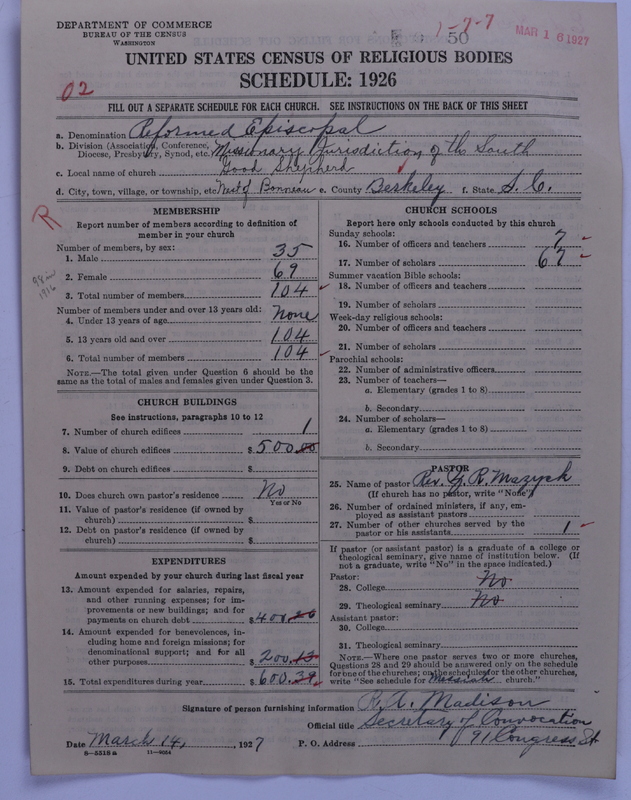 DEPARTMENT OF COMMERCE
BUREAU OF THE CENSUS
WASHINGTON
1-7-7
50
MAR 16 1927
UNITED STATES CENSUS OF RELIGIOUS BODIES
SCHEDULE: 1926
02
FILL OUT A SEPARATE SCHEDULE FOR EACH CHURCH. SEE INSTRUCTIONS ON THE BACK OF THIS SHEET
a. Denomination Reformed Episcopal
b. Division (Association, Conference, Diocese, Presbytery, Synod, etc. Missionary Jurisdiction of the South
c. Local name of church Good Shepherd
d. City, town, village, or township, etc. West of Bonneau e. County Berkeley f. State S. C.
R
MEMBERSHIP
Report number of members according to definition of
member in your church
Number of members, by sex:
1. Male 35
2. Female 69
3. Total number of members 104
98 in 1916
Number of members under and over 13 years old:
4. Under 13 years of age None
5. 13 years old and over 104
6. Total number of members 104
NOTE.—The total given under Question 6 should be the
same as the total of males and females given under Question 3.
CHURCH BUILDINGS
See instructions, paragraphs 10 to 12
7. Number of church edifices 1
8. Value of church edifices $ 500.00
9. Debt on church edifices $
10. Does church own pastor's residence No
Yes or No
11. Value of pastor's residence (if owned by
church) $
12. Debt on pastor's residence (if owned by
church) $
EXPENDITURES
Amount expended by your church during last fiscal year
13. Amount expended for salaries, repairs,
and other running expenses; for im-
provements or new buildings; and for
payments on church debt $ 400.
14. Amount expended for benevolences, in-
cluding home and foreign missions; for
denominational support; and for all
other purposes $ 200.
15. Total expenditures during year $ 600.
CHURCH SCHOOLS
Report here only schools conducted by this church
Sunday schools:
16. Number of officers and teachers 7
17. Number of scholars 67
Summer vacation Bible schools:
18. Number of officers and teachers
19. Number of scholars
Week-day religious schools:
20. Number of officers and teachers
21. Number of scholars
Parochial schools:
22. Number of administrative officers
23. Number of teachers—
a. Elementary (grades 1 to 8)
b. Secondary
24. Number of scholars—
a. Elementary (grades 1 to 8)
b. Secondary
PASTOR
25. Name of pastor Rev. R. Mazyck
(If church has no pastor, write "None")
26. Number of ordained ministers, if any, em-
ployed as assistant pastors
27. Number of other churches served by the
pastor or his assistants 1
If pastor (or assistant pastor) is a graduate of a college or
theological seminary, give name of institution below. (If
not a graduate, write "No" in the space indicated.)
Pastor:
28. College No
29. Theological seminary No
Assistant pastor:
30. College
31. Theological seminary
NOTE.—Where one pastor serves two or more churches,
Questions 28 and 29 should be answered only on the schedule
for one of the churches; on the schedules for the other churches,
write "See schedule for Messiah church."
Signature of person furnishing information R. A. Madison
Official title Secretary of Convocation
Date March 14, 1927 P. O. Address 91 Congress St
8-5518a 11-9034